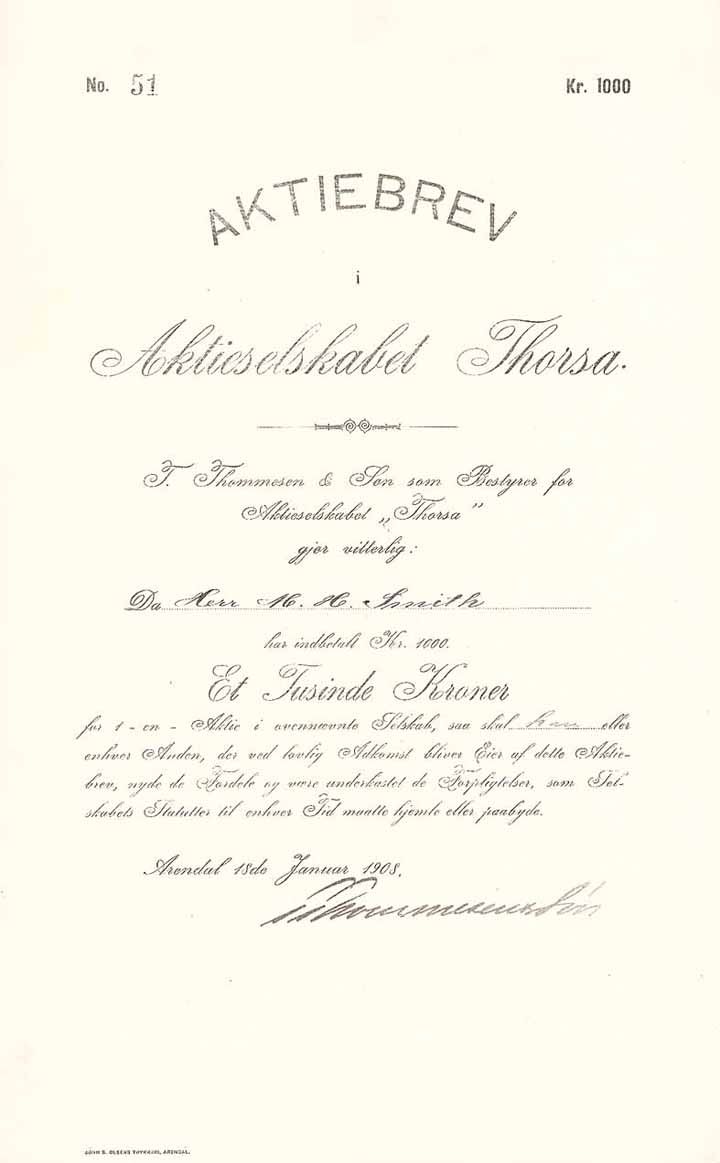 No. 51
Kr. 1000
AKTIEBREV
i
Aktieselskabet Thorsa.
T. Thommesen & Søn som Bestyrer for
Aktieselskabet „Thorsa"
gjør vitterlig:
Da Herr M. H. Smith
har indbetalt Kr. 1000.
Et Tusinde Kroner
for 1 - en - Aktie i ovennævnte Selskab, saa skal han eller
enhver Anden, der ved lovlig Adkomst bliver Eier af dette Aktie-
brev, nyde de Fordele og være underkastet de Forpligtelser, som Sel-
skabets Statutter til enhver Tid maatte hjemle eller paabyde.
Arendal 18de Januar 1908.
T Thommesen & Søn
S. OLSENS TRYKKERI, ARENDAL.